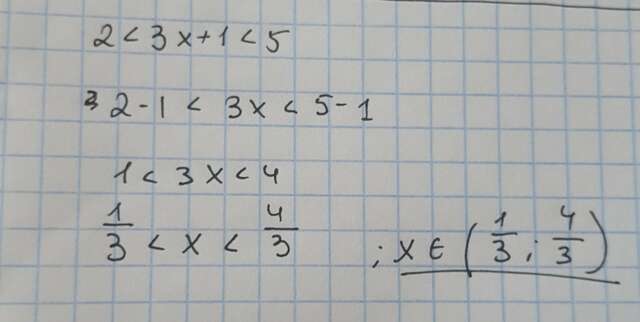 2 < 3x + 1 < 5
2 - 1 < 3x < 5 - 1
1 < 3x < 4
1/3 < x < 4/3 ; x ∈ (1/3 ; 4/3)